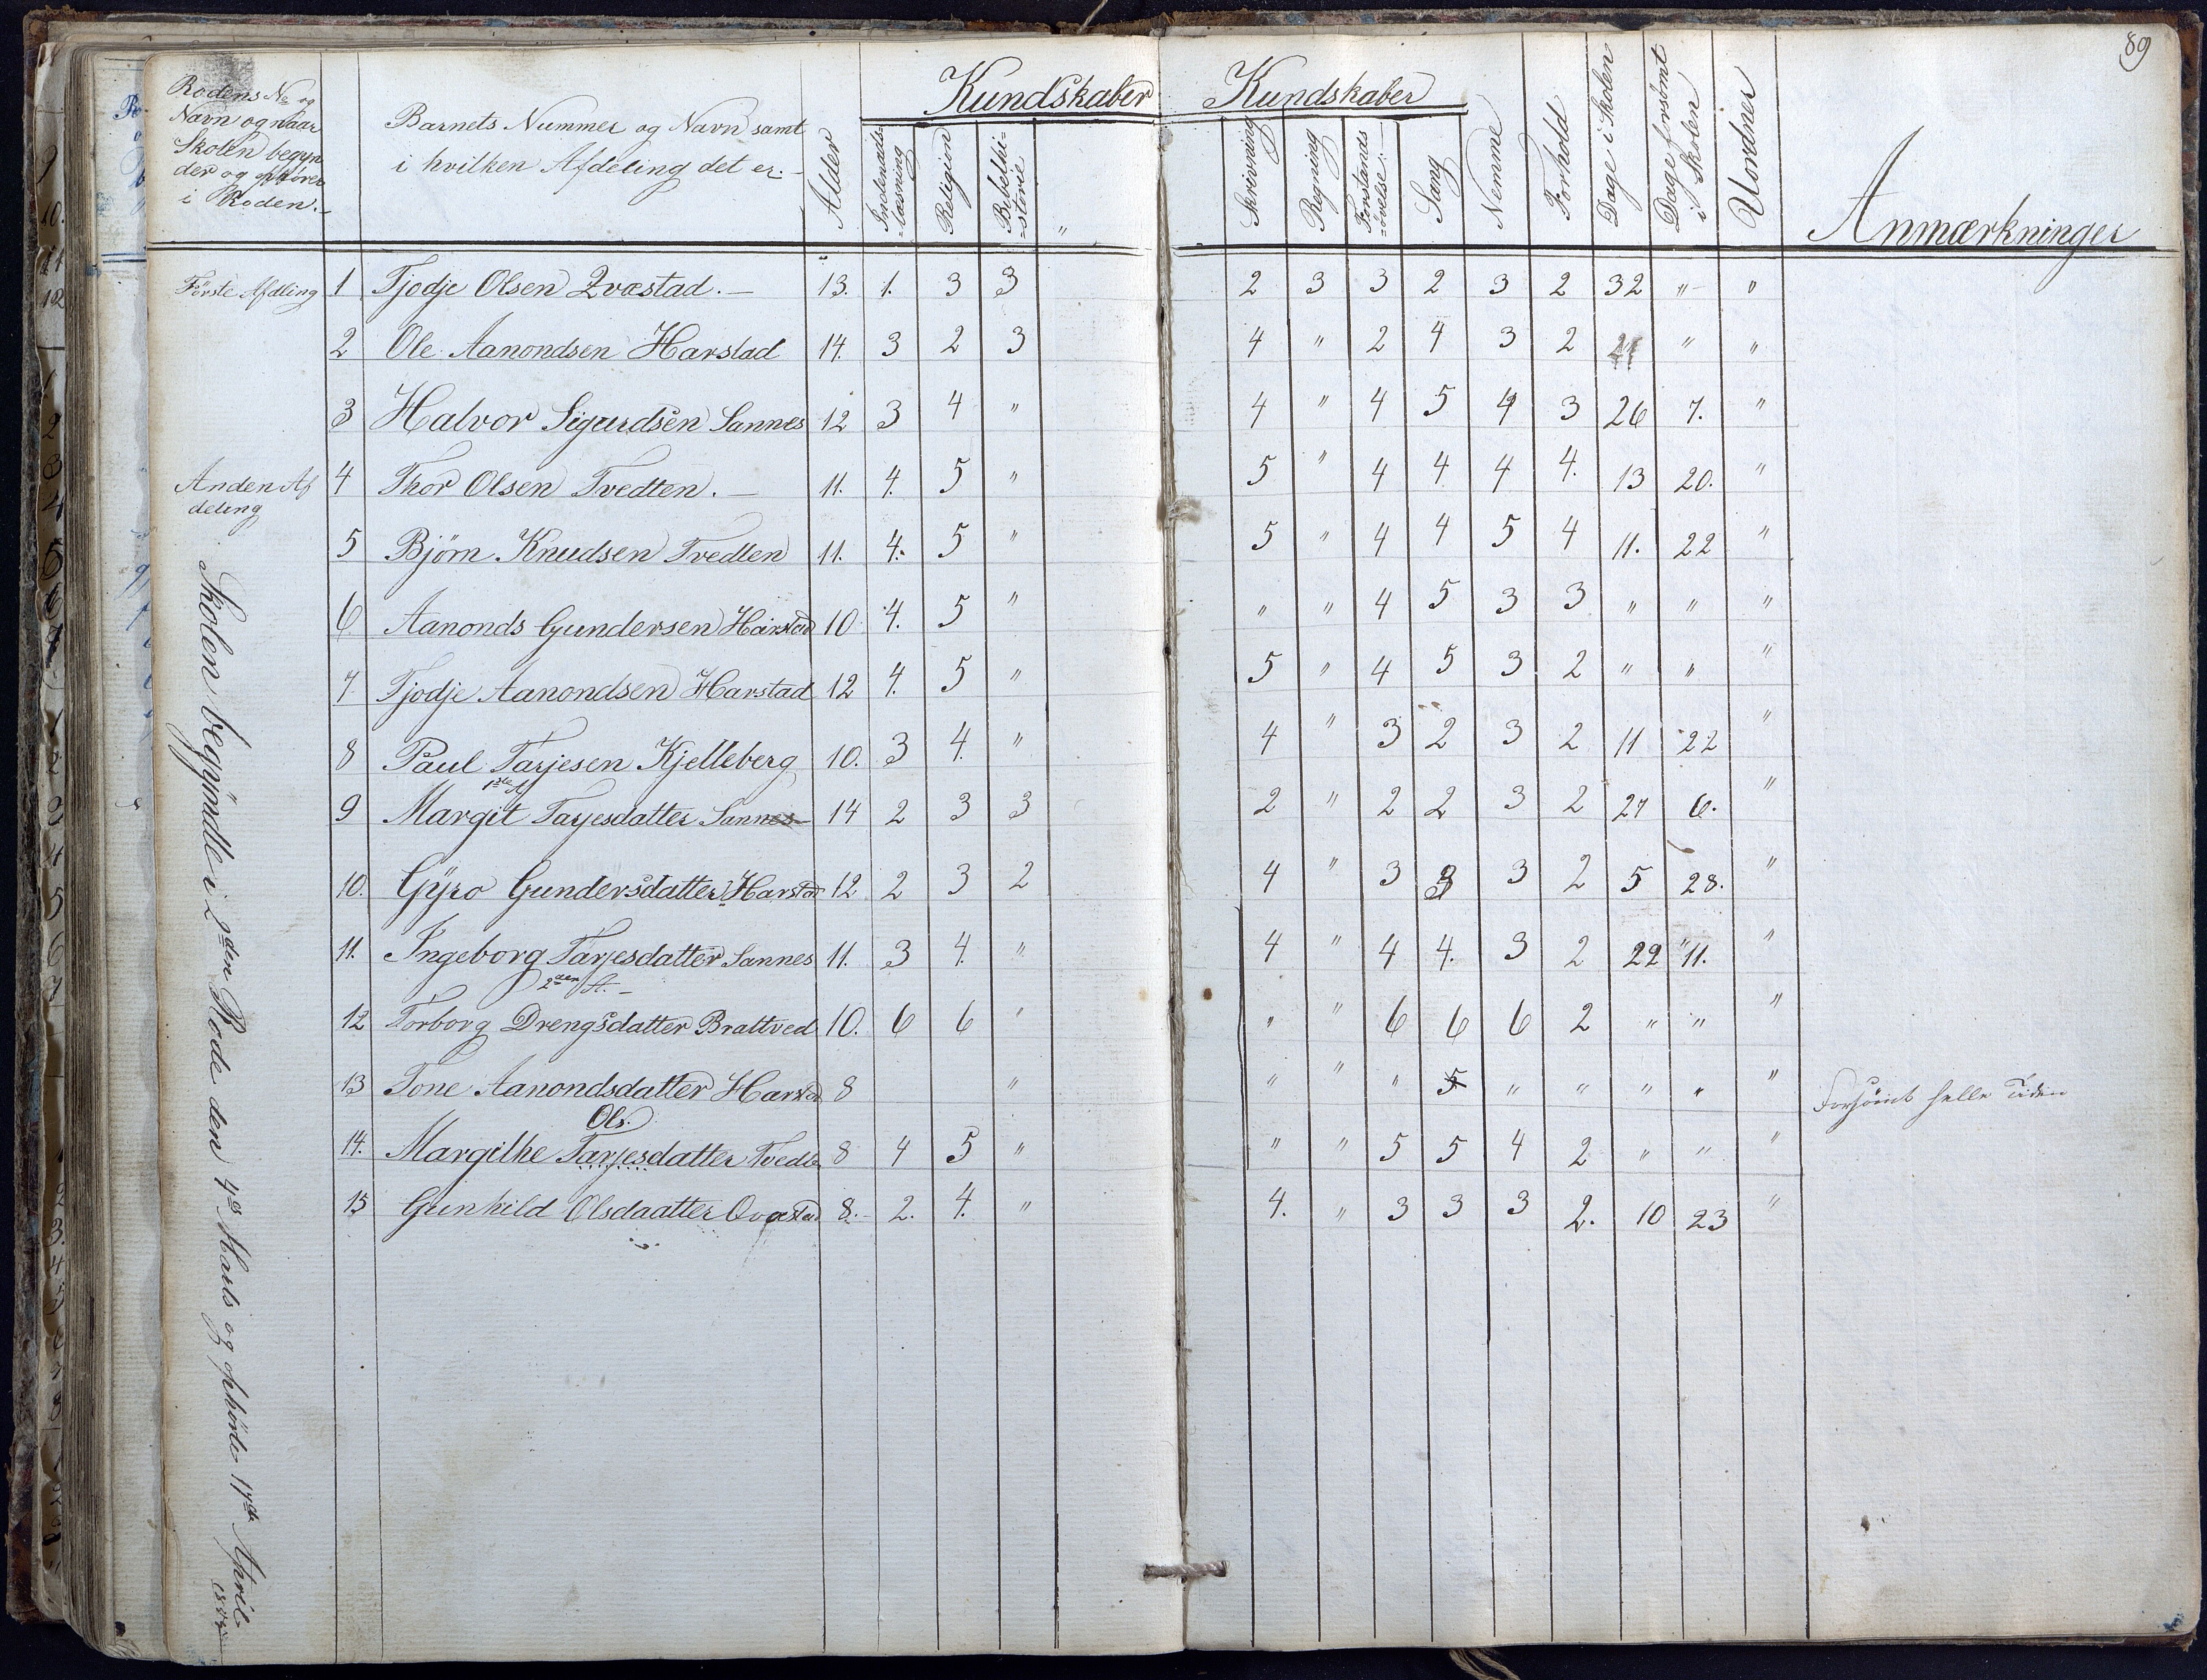 89
Rodens No og
Navn og naar
Skolen begyn
der og ophører
i Roden.-
Barnets Nummer og Navn samt
i hvilken Afdeling det er.-
Alder
Kundskaber
Indenads-
-læsning
Religion
Bibelhi-
-storie
"
Kundskaber
Skrivning
Regning
Forstands
-øvelse:-
Sang
Nemme
Forhold
Dage i Skolen
Dage forsømt
i Skolen
Uordner
Anmærkninger
Første Afdling 1 Tjodje Olsen Qvæstad.- 13. 1. 3 3 2 3 3 2 3 2 32 " "
2 Ole Aanondsen Harstad 14. 3 2 3 4 " 2 4 3 2 " "
3 Halvor Sigurdsen Sannes 12 3 4 " 4 " 4 5 4 3 26 7. "
Anden Af
deling
4 Thor Olsen Tvedten.- 11. 4. 5 " 5 " 4 4 4 4. 13 20. "
5 Bjørn Knudsen Tvedten 11. 4. 5 " 5 " 4 4 5 4 11. 22 "
6 Aanonds Gundersen Harstad 10 4. 5 " " " 4 5 3 3 " " "
7 Tjodje Aanondsen Harstad 12 4. 5 " 5 " 4 5 3 2 " " "
8 Paul Tarjesen Kjelleberg 10. 3 4. " 4 " 3 2 3 2 11 22 "
1ste A
9 Margit Tarjesdatter Sannes 14 2 3 3 2 " 2 2 3 2 27 6. "
10. Gyro Gundersdatter Harstad 12 2 3 2 4 " 3 3 3 2 5 28. "
11. Ingeborg Tarjesdatter Sannes 11. 3 4. " 4 " 4 4. 3 2 22 "11. "
2den A.-
12 Torborg Drengsdatter Brattved 10. 6 6 " " " 6 6 6 2 " " "
13 Tone Aanondsdatter Harstad 8 " " " " 5 " " " " " Forsømt helle Tiden
Ols.
14. Margithe Tarjesdatter Tvedten 8 4 5 " " " 5 5 4 2 " " "
15 Gunhild Olsdaatter Qvæstad 8. 2. 4. " 4. " 3 3 3 2. 10 23 "
Skolen begyndte i 2den Rode den 4de Marts og ophørte 17de April